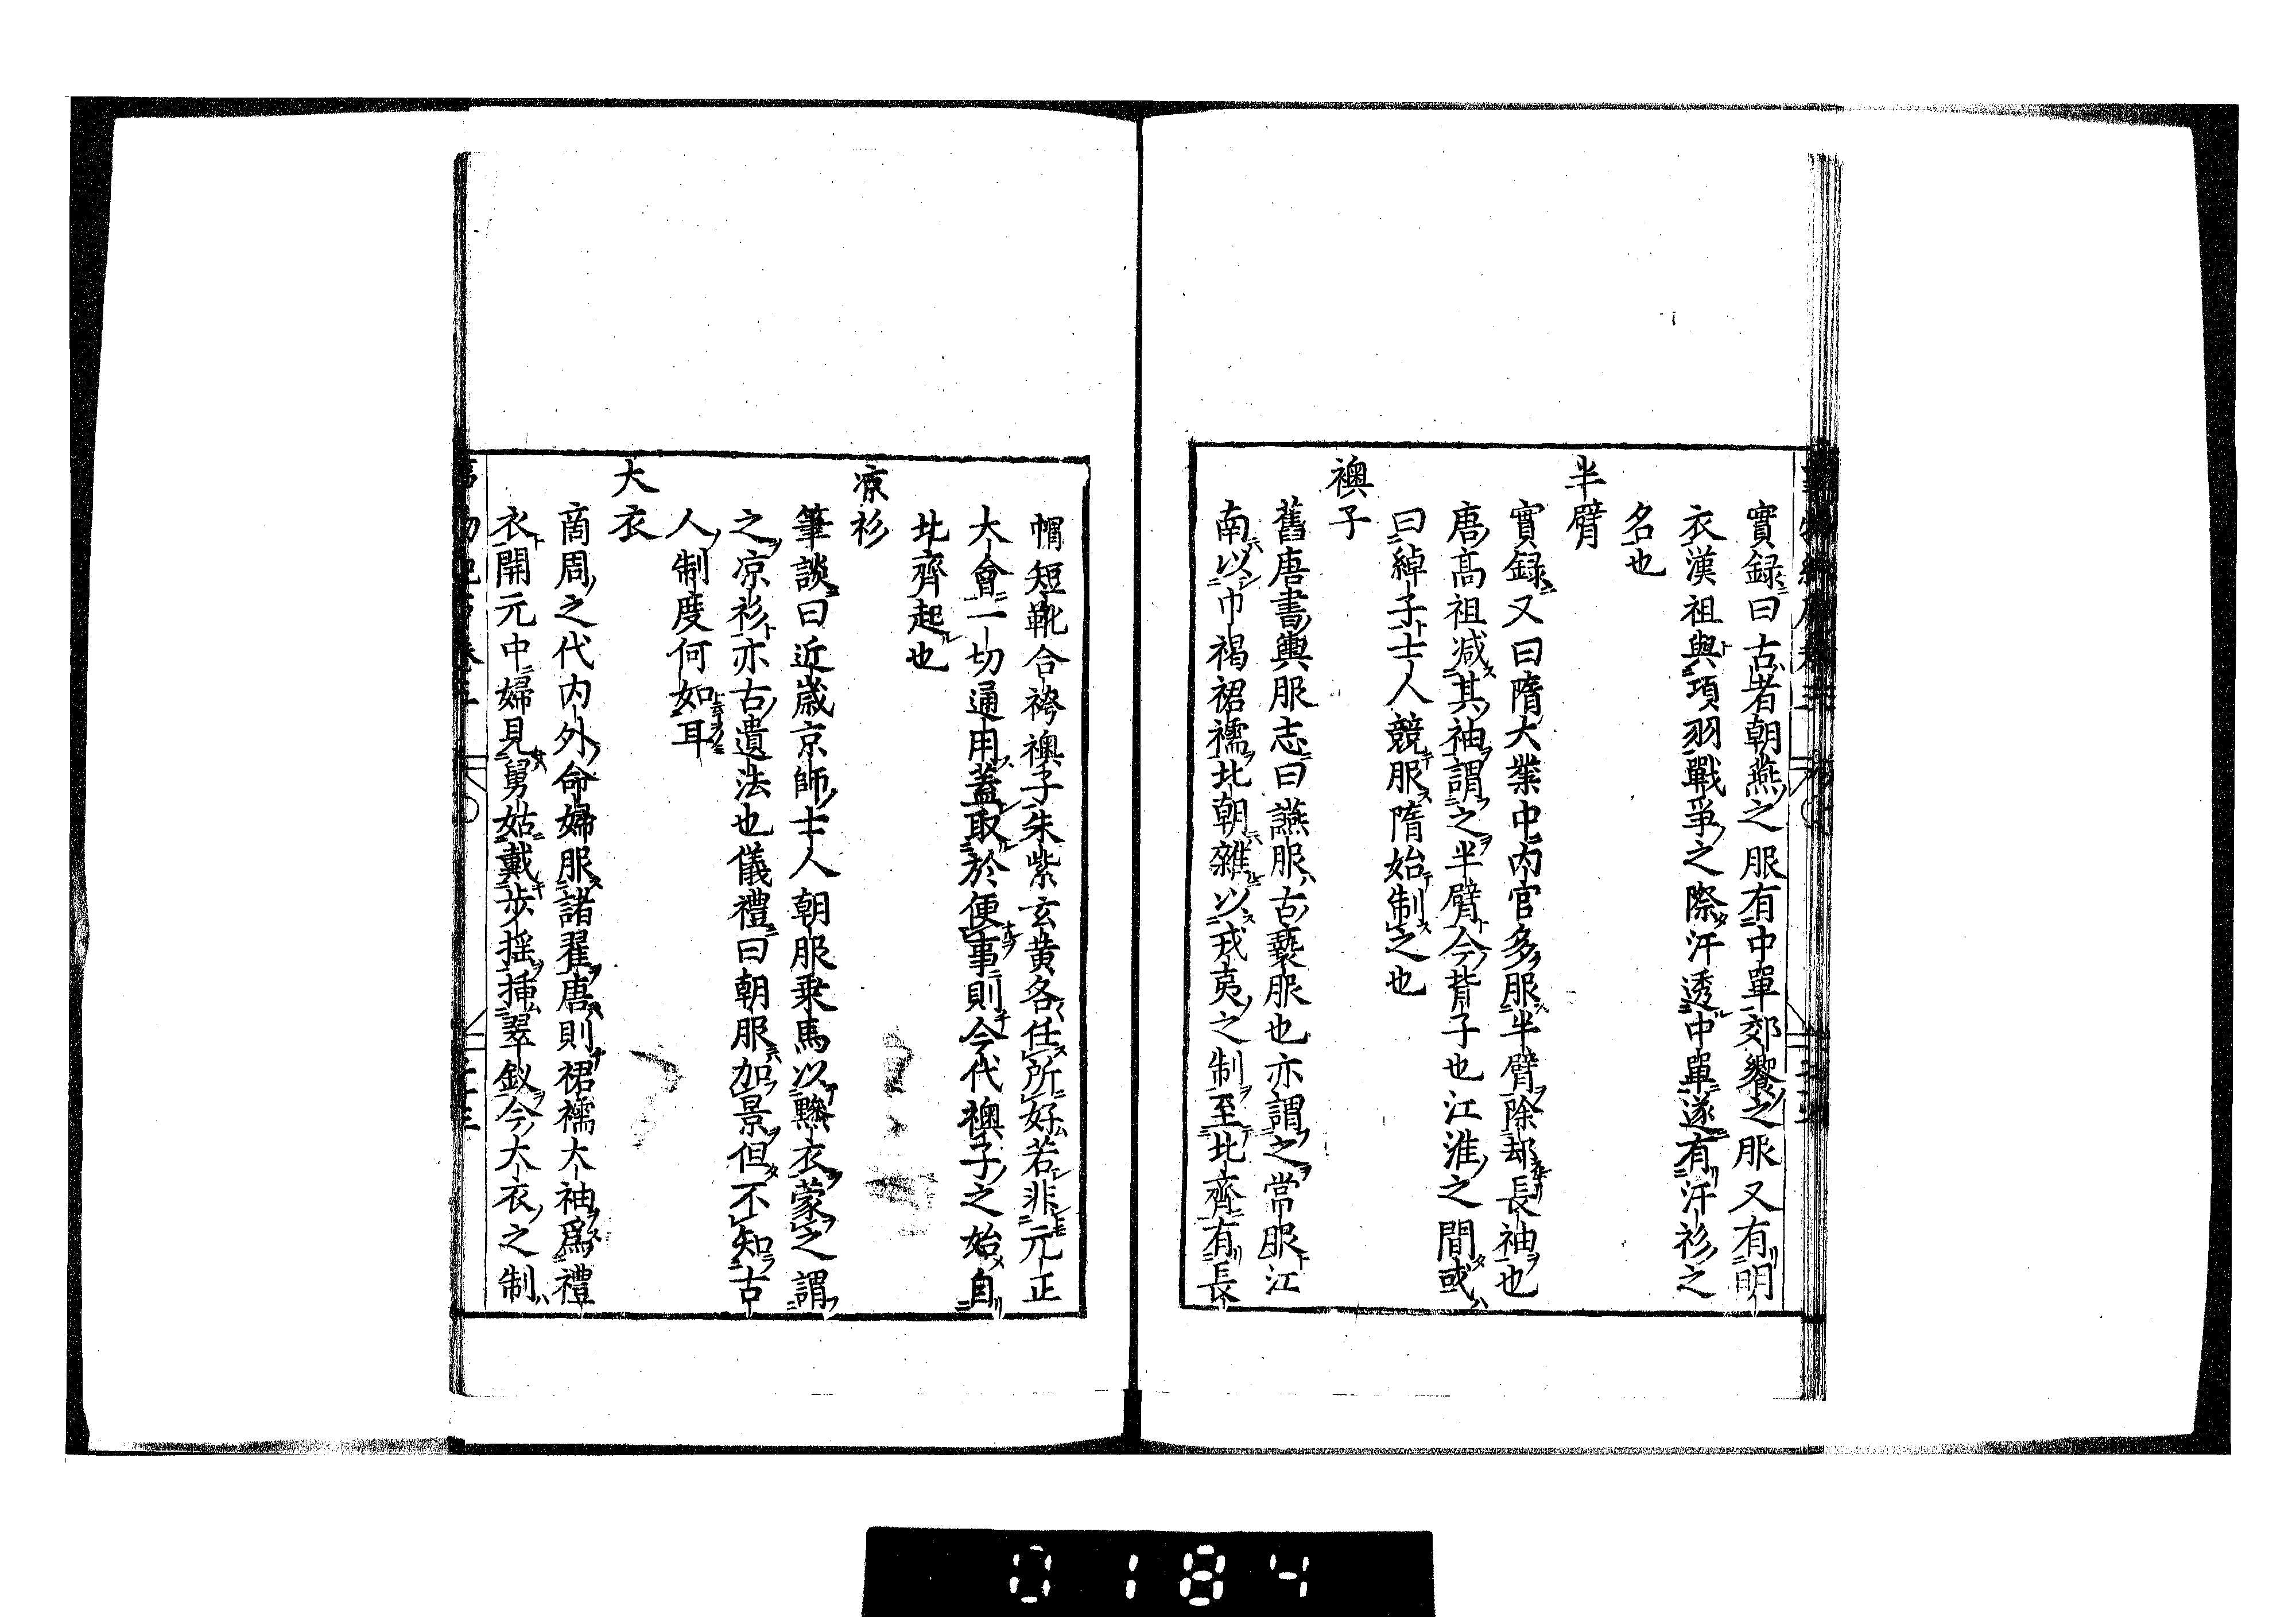 實録曰古者朝燕之服有中單郊饗之服又有明
衣漢祖與項羽戰爭之際汗透中單遂有汗衫之
名也
半臂
實録又曰隋大業中内官多服半臂除却長袖也
唐髙祖减其袖謂之半臂今背子也江淮之間或
曰綽子士人競服隋始制之也
襖子
舊唐書輿服志曰讌服古䙝服也亦謂之常服江
南以巾褐裙襦北朝雜以戎夷之制至北齊有長
帽短靴合袴襖子朱紫玄黄各任所好若非元正
大會一切通用蓋取於便事則今代襖子之始自
北齊起也
凉衫
筆談曰近歳京師士人朝服乗馬以黲衣蒙之謂
之凉衫亦古遺法也儀禮曰朝服加景但不知古
人制度何如耳
大衣
啇周之代内外命婦服諸翟唐則裙襦大袖爲禮
衣開元中婦見舅姑戴步摇揷翠釵今大衣之制
0184